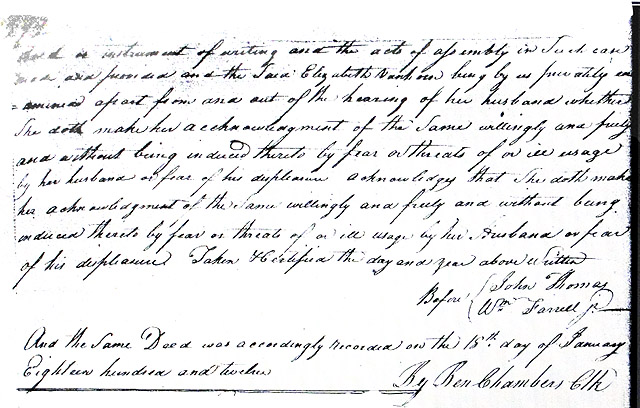 deed or instrument of writing and the acts of assembly in Such case
made and provided and the Said Elizabeth being by us privately ex
= amined apart from and out of the hearing of her husband whether
She doth make her acknowledgment of the Same willingly and freely
and without being induced thereto by fear or threats of or ill usage
by her husband or fear of his displeasure acknowledges that She doth make
her acknowledgment of the Same willingly and freely and without being
induced thereto by fear or threats of or ill usage by her Husband or fear
of his displeasure Taken & Certified the day and year above written
Before John Thomas
Wm Farrell Jr
And the Same Deed was accordingly recorded on the 15th day of January
Eighteen hundred and twelve
By Ben Chambers Clk